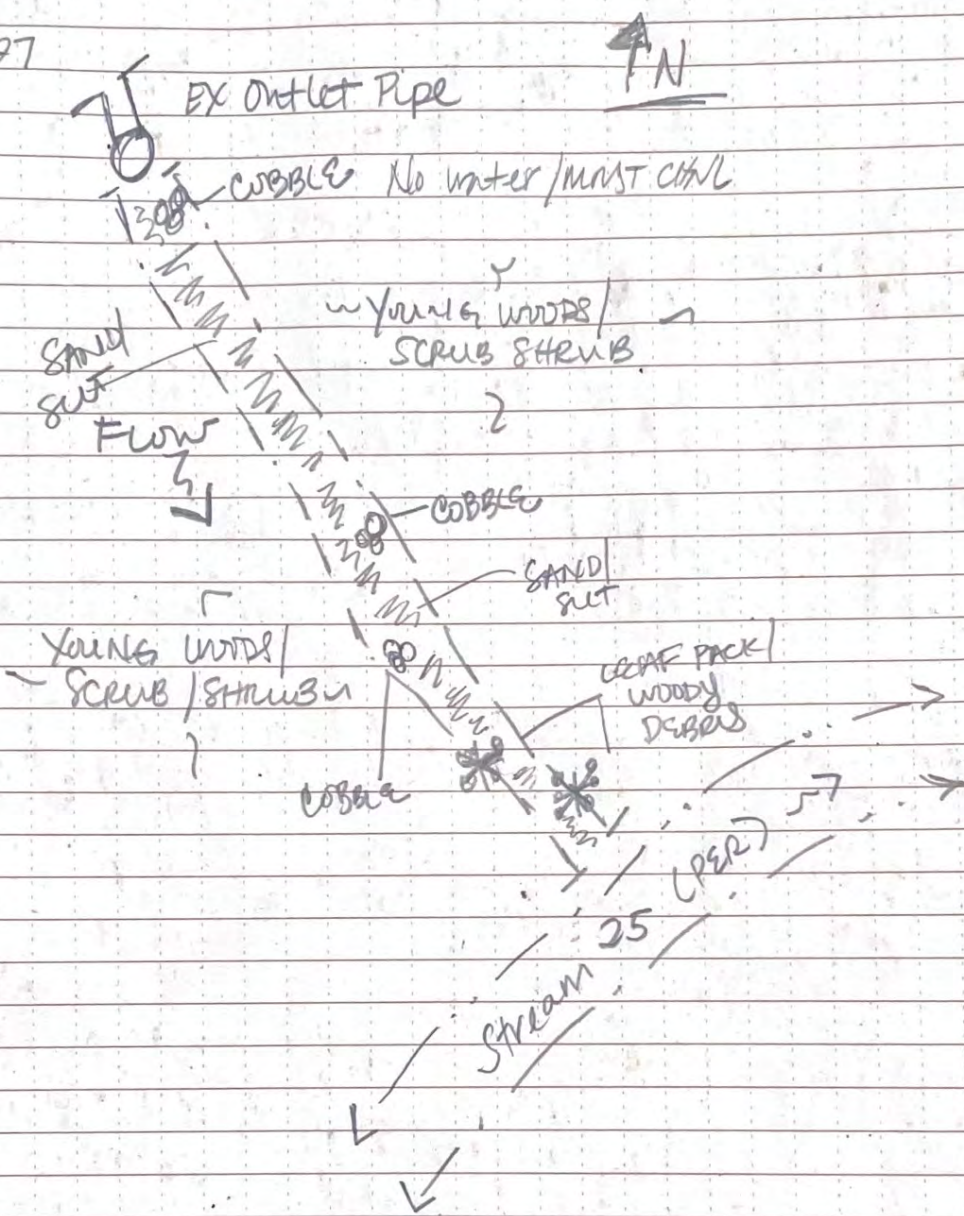 27
N
EX Outlet Pipe
COBBLE No water/moist CHNL
YOUNG WOODS/
SCRUB SHRUB
SAND/
SILT
FLOW
COBBLE
SAND/
SILT
YOUNG WOODS/
SCRUB/SHRUB
LEAF PACK/
WOODY
DEBRIS
COBBLE
Stream 25 (PER)